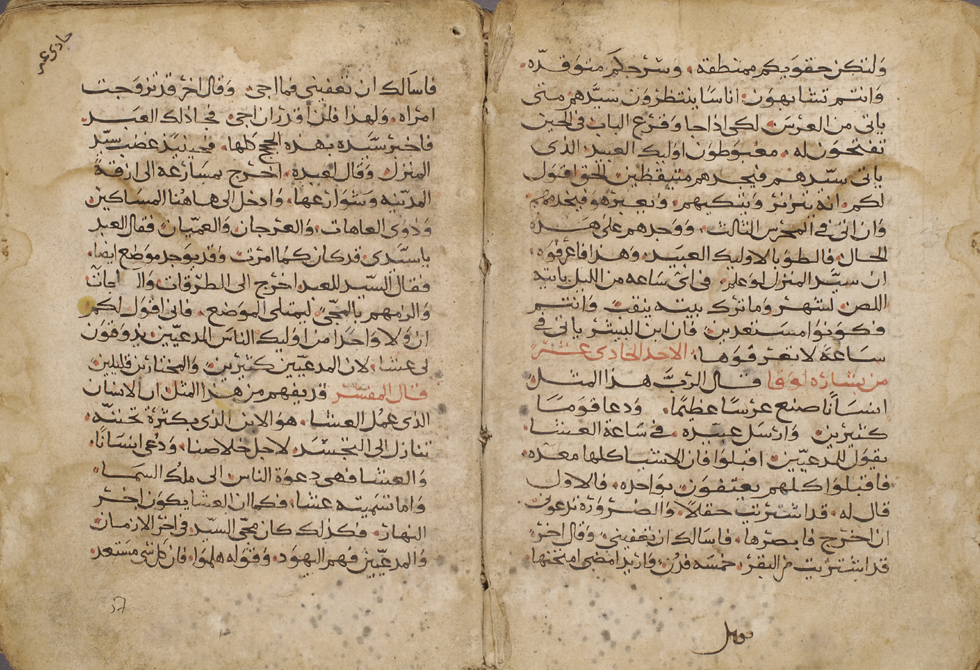 ولتكن حقويكم ممنطقه، وسرجكم متوقده
وانتم تتشابهون اناسا ينتظرون سيدهم متى
ياتى من العرس لكى اذا جا وقرع الباب فى الحين
يفتحون له مغبوطون اوليك العبيد الذى
ياتى سيدهم فيجدهم متيقظين الحق اقول
لكم انه يتزنر ويتكيهم ويعبر هو فيخدمهم
وان اتى فى المحرس التالت ووجدهم على هذه
الحال فالطوبا لاوليك العبيد وهذا فاعرفوه
ان سيد المنزل لو علم فى اى ساعه من الليل ياتيه
اللص لسهر وما ترك بيته ينقب وانتم
فكونوا مستعدين فان ابن البشر ياتى فى
ساعة لا تعرفوها الاحد الحادى عشر
من بشاره لوقا قال الرب هذا المثل
انسانا صنع عرسا عظيما ودعا قوما
كتيرين وارسل عبده فى ساعة العشا
يقول للمدعيين اقبلوا فان الاشيا كلها معده
فاقبلوا كلهم يعتفون بواحده فالاول
قال له قد اشتريت حقلا والضروره تدعونى
ان اخرج فابصرها فاسالك ان تعفينى وقال اخر
قد اشتريت من البقر خمسه فدن واريد امضى امتحنها
قوبل
حادى عشر
فاسالك ان تعفينى فما اجى وقال اخر قد تزوجت
امراه ولهذا فلن اقدر ان اجى فجا ذلك العبد
فاخبر سيده بهذه الحجج كلها فحينيذ غضب سيد
المنزل وقال لعبده اخرج بمسارعه الى ازقة
المدينه وشوارعها وادخل الى هاهنا المساكين
وذوى العاهات والعرجان والعميان فقال العبد
يا سيدى قد كان كما امرت وقد يوجد موضع ايضا
فقال السيد للعبد اخرج الى الطرقات
والزمهم بالمجى ليمتلى الموضع فانى اقول لكم
ان ولا واحدا من اوليك الناس المدعيين يدوقون
لى عشا لان المدعيين كتيرين والمختارين قليلين
قال المفسر قد يفهم من هذا المثل ان الانسان
الذى عمل العشا هو الابن الذى بكثرة تحننه
تنازل الى التجسد لاجل خلاصنا ودعى انسانا
والعشا فهى دعوة الناس الى ملك السما
واما تسميته عشا فكما ان العشا يكون اخر
النهار فكذلك كان مجى السيد فى اخر الازمان
والمدعيين فهم اليهود وقوله هلموا فان كل شى مستعد
57